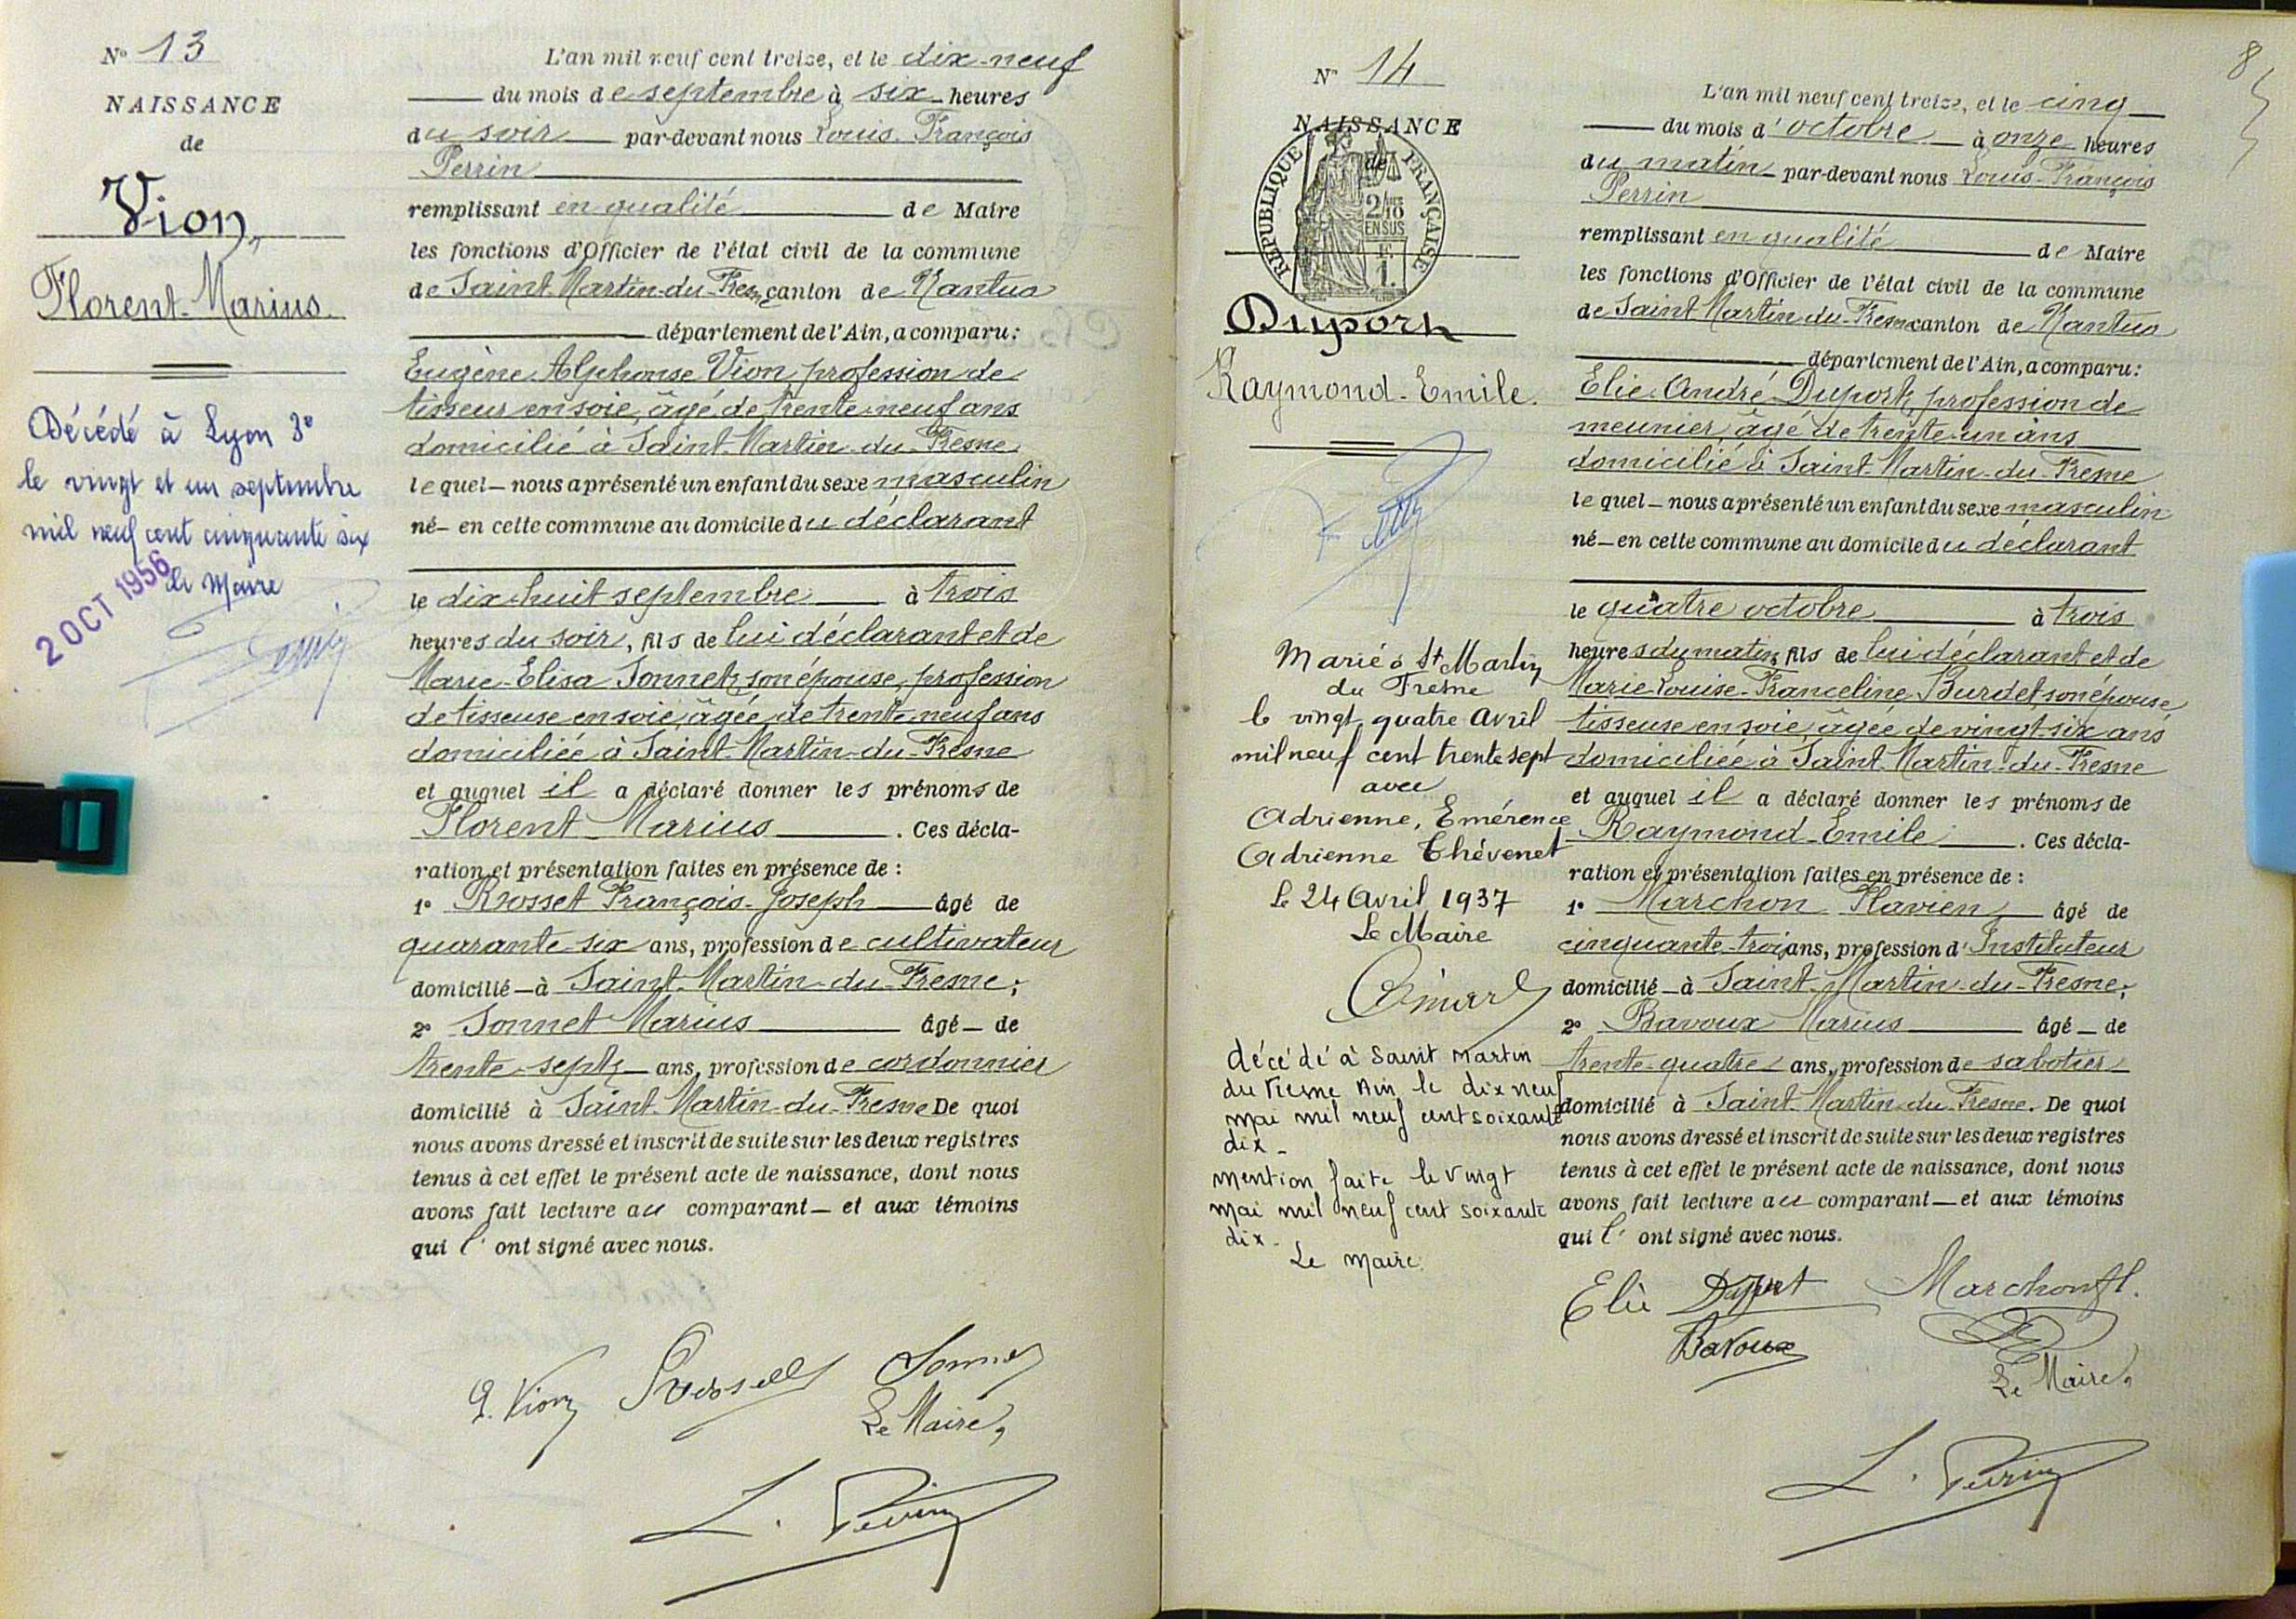 N° 13
NAISSANCE
de
Vion,
Florent-Marius.
Décédé à Lyon 3e
le vingt et un septembre
mil neuf cent cinquante six
Le Maire
2 OCT 1956
L'an mil neuf cent treize, et le dix-neuf
du mois de septembre à six heures
du soir par-devant nous Louis François
Perrin
remplissant en qualité de Maire
les fonctions d'Officier de l'état civil de la commune
de Saint-Martin-du-Fresne canton de Nantua
département de l'Ain, a comparu:
Eugène Alphonse Vion, profession de
tisseur en soie, âgé de trente-neuf ans
domicilié à Saint-Martin-du-Fresne
lequel nous a présenté un enfant du sexe masculin
né en cette commune au domicile du déclarant
le dix-huit septembre à trois
heures du soir, fils de lui déclarant et de
Marie-Elisa Sonnet, son épouse, profession
de tisseuse en soie, âgée de trente-neuf ans
domiciliée à Saint-Martin-du-Fresne
et auquel il a déclaré donner les prénoms de
Florent Marius. Ces décla-
ration et présentation faites en présence de :
1° Rosset François-Joseph âgé de
quarante-six ans, profession de cultivateur
domicilié à Saint-Martin-du-Fresne;
2° Sonnet Marius âgé de
trente-sept ans, profession de cordonnier
domicilié à Saint-Martin-du-Fresne De quoi
nous avons dressé et inscrit de suite sur les deux registres
tenus à cet effet le présent acte de naissance, dont nous
avons fait lecture au comparant et aux témoins
qui l'ont signé avec nous.
E. Vion Rosset Sonnet
Le Maire,
L. Perrin
8
N° 14
NAISSANCE
de
REPUBLIQUE FRANÇAISE
2/10
EN SUS
1.
Duport
Raymond-Emile.
Marié à St Martin
du Fresne
le vingt quatre Avril
mil neuf cent trente sept
avec
Adrienne, Emérence
Adrienne Thévenet
Le 24 Avril 1937
Le Maire
décédé à Saint Martin
du Fresne Ain le dix neuf
mai mil neuf cent soixante
dix -
mention faite le vingt
mai mil neuf cent soixante
dix -
Le Maire.
L'an mil neuf cent treize, et le cinq
du mois d'octobre à onze heures
du matin par-devant nous Louis-François
Perrin
remplissant en qualité de Maire
les fonctions d'Officier de l'état civil de la commune
de Saint-Martin-du-Fresne canton de Nantua
département de l'Ain, a comparu:
Elie-André Duport, profession de
meunier, âgé de trente-un ans
domicilié à Saint-Martin-du-Fresne
lequel nous a présenté un enfant du sexe masculin
né en cette commune au domicile du déclarant
le quatre octobre à trois
heures du matin, fils de lui déclarant et de
Marie-Louise-Franceline Burdet, son épouse
tisseuse en soie, âgée de vingt-six ans
domiciliée à Saint-Martin-du-Fresne
et auquel il a déclaré donner les prénoms de
Raymond-Emile. Ces décla-
ration et présentation faites en présence de :
1° Marchon Flavien, âgé de
cinquante-trois ans, profession d'Instituteur
domicilié à Saint-Martin-du-Fresne;
2° Bavoux Marius âgé de
trente-quatre ans, profession de sabotier
domicilié à Saint-Martin-du-Fresne. De quoi
nous avons dressé et inscrit de suite sur les deux registres
tenus à cet effet le présent acte de naissance, dont nous
avons fait lecture au comparant et aux témoins
qui l'ont signé avec nous.
Elie Duport Marchon fl.
Bavoux
Le Maire,
L. Perrin